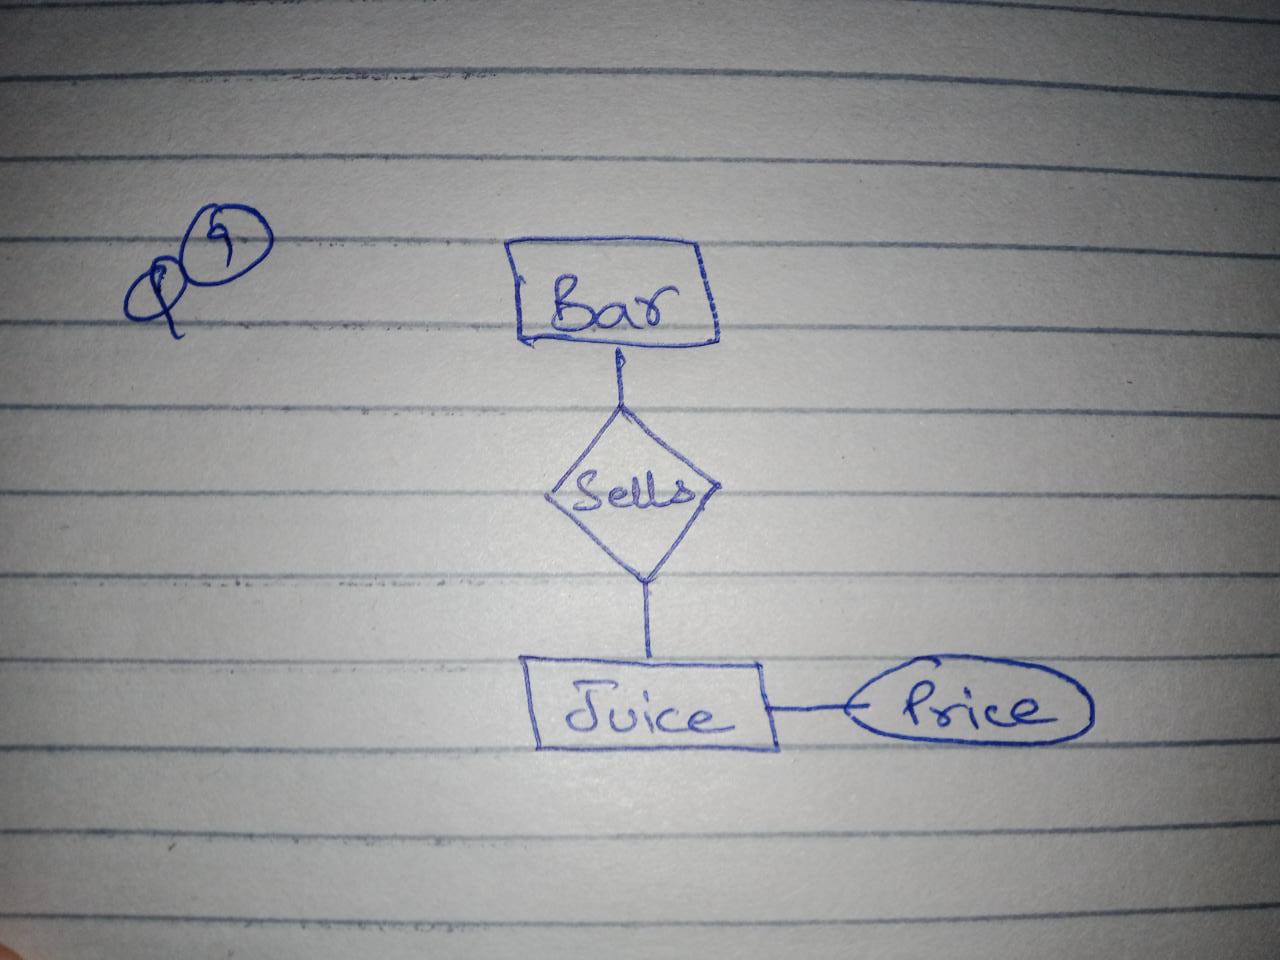 Q 9
Bar
Sells
Juice Price